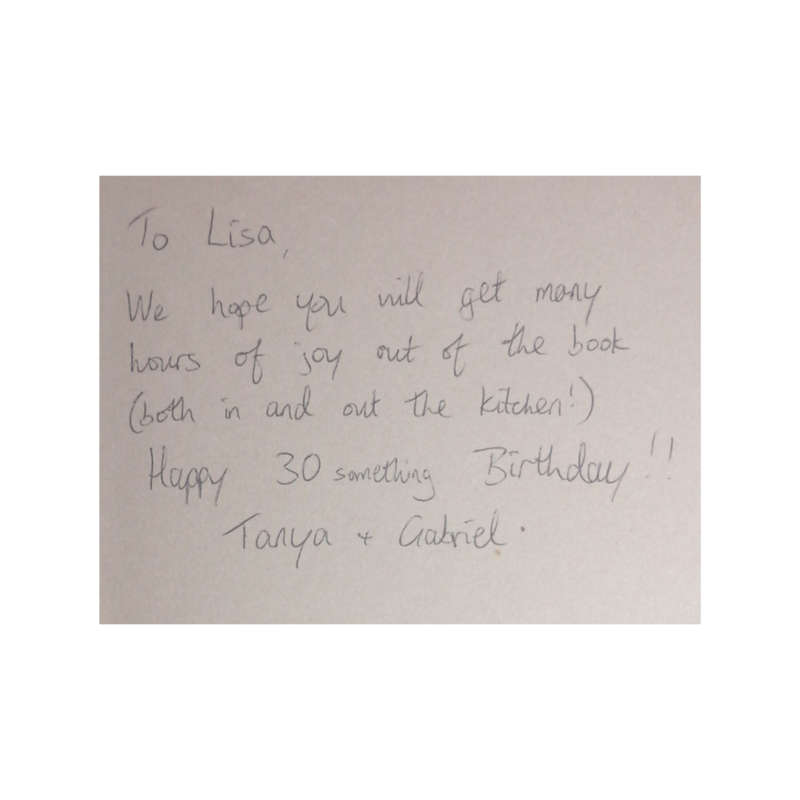 To Lisa,
We hope you will get many
hours of joy out of the book
(both in and out the kitchen!)
Happy 30 something Birthday!!
Tanya + Gabriel.